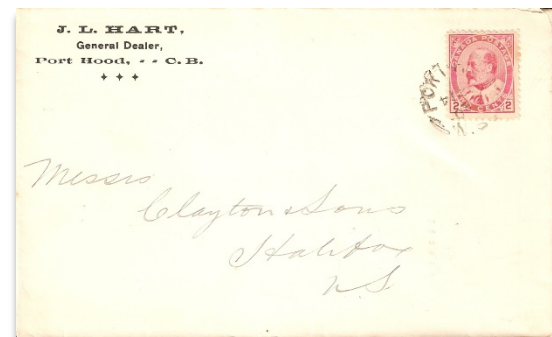 J. L. HART,
General Dealer,
Port Hood, - - C. B.
CANADA POSTAGE
2 CENTS 2
PORT
N.S
Messrs
Clayton & Sons
Halifax
N S